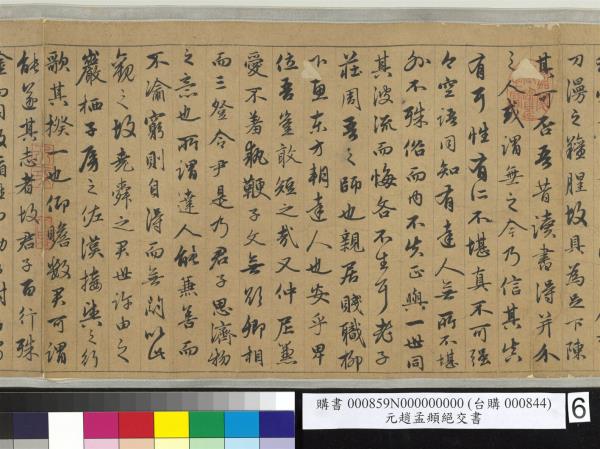 刀漫之羶腥故具為足下陳
其可否吾昔讀書得并介
之人或謂無之今乃信其真
有耳性有所不堪真不可強
今空語同知有達人無所不堪
外不殊俗而內不失正與一世同
其波流而悔吝不生耳老子
莊周吾之師也親居賤職柳
下惠東方朔達人也安乎卑
位吾豈敢短之哉又仲尼兼
愛不羞執鞭子文無欲卿相
而三登令尹是乃君子思濟物
之意也所謂達人能兼善而
不渝窮則自得而無悶以此
觀之故堯舜之君世許由之
巖栖子房之佐漢接輿之行
歌其揆一也仰瞻數君可謂
能遂其志者故君子百行殊
購書 000859N000000000 (台購 000844)
元趙孟頫絕交書
6